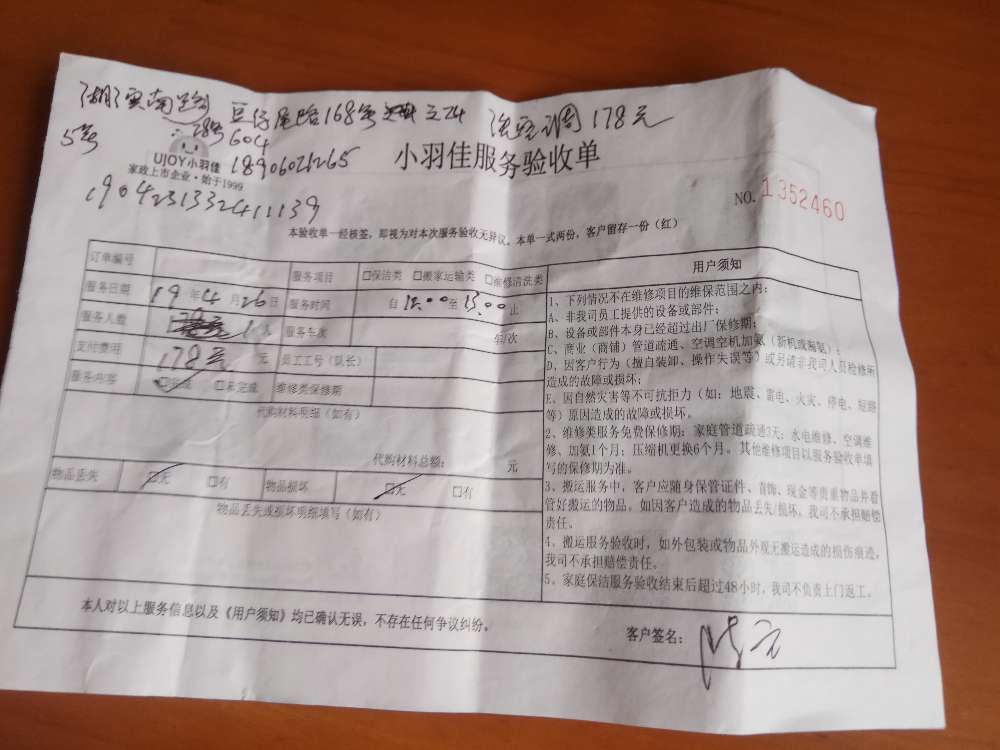 湖滨南路 豆仔尾路168号之24 洗空调178元
5号 28号 604
UJOY小羽佳 18906021265 小羽佳服务验收单
家政上市企业·始于1999
1904231332411139 NO.1352460
本验收单一经核签，即视为对本次服务验收无异议。本单一式两份，客户留存一份（红）
订单编号 服务项目 □保洁类 □搬家运输类 □维修清洗类 用户须知
服务日期 19 年 4 月 26 日 服务时间 自 至 15:00 止
服务人数 1 人 服务车次 车/次
支付费用 178元 元 员工工号（队长）
服务内容 □完成 □未完成 维修类保修期
代购材料明细（如有）
代购材料总额： 元
物品丢失 □无 □有 物品损坏 □无 □有
物品丢失或损坏明细填写（如有）
1、下列情况不在维修项目的维保范围之内：
A、非我司员工提供的设备或部件；
B、设备或部件本身已经超过出厂保修期；
C、商业（商铺）管道疏通、空调空机加氨（新机或漏氨）；
D、因客户行为（擅自装卸、操作失误等）或另请非我司人员检修所
造成的故障或损坏；
E、因自然灾害等不可抗拒力（如：地震、雷电、火灾、停电、短路
等）原因造成的故障或损坏。
2、维修类服务免费保修期：家庭管道疏通3天；水电维修、空调维
修、加氨1个月；压缩机更换6个月。其他维修项目以服务验收单填
写的保修期为准。
3、搬运服务中，客户应随身保管证件、首饰、现金等贵重物品并看
管好搬运的物品。如因客户造成的物品丢失/损坏，我司不承担赔偿
责任。
4、搬运服务验收时，如外包装或物品外观无搬运造成的损伤痕迹，
我司不承担赔偿责任。
5、家庭保洁服务验收结束后超过48小时，我司不负责上门返工。
本人对以上服务信息以及《用户须知》均已确认无误，不存在任何争议纠纷。 客户签名：